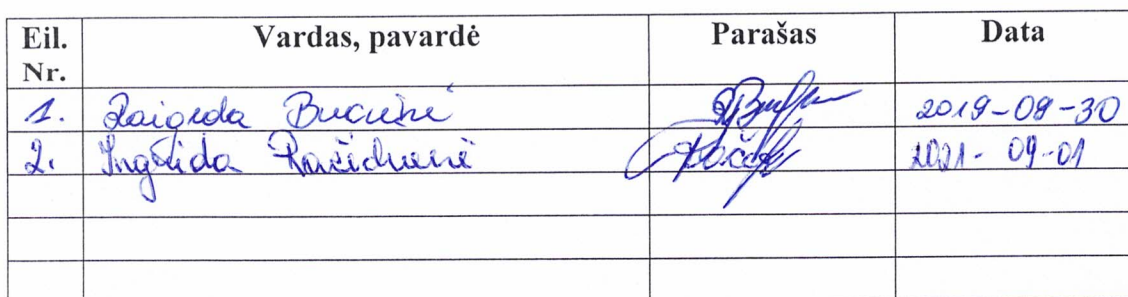 Eil. Nr. Vardas, pavardė Parašas Data
1. Raigeda Bucienė 2019-09-30
2. Ingrida 2021-09-01